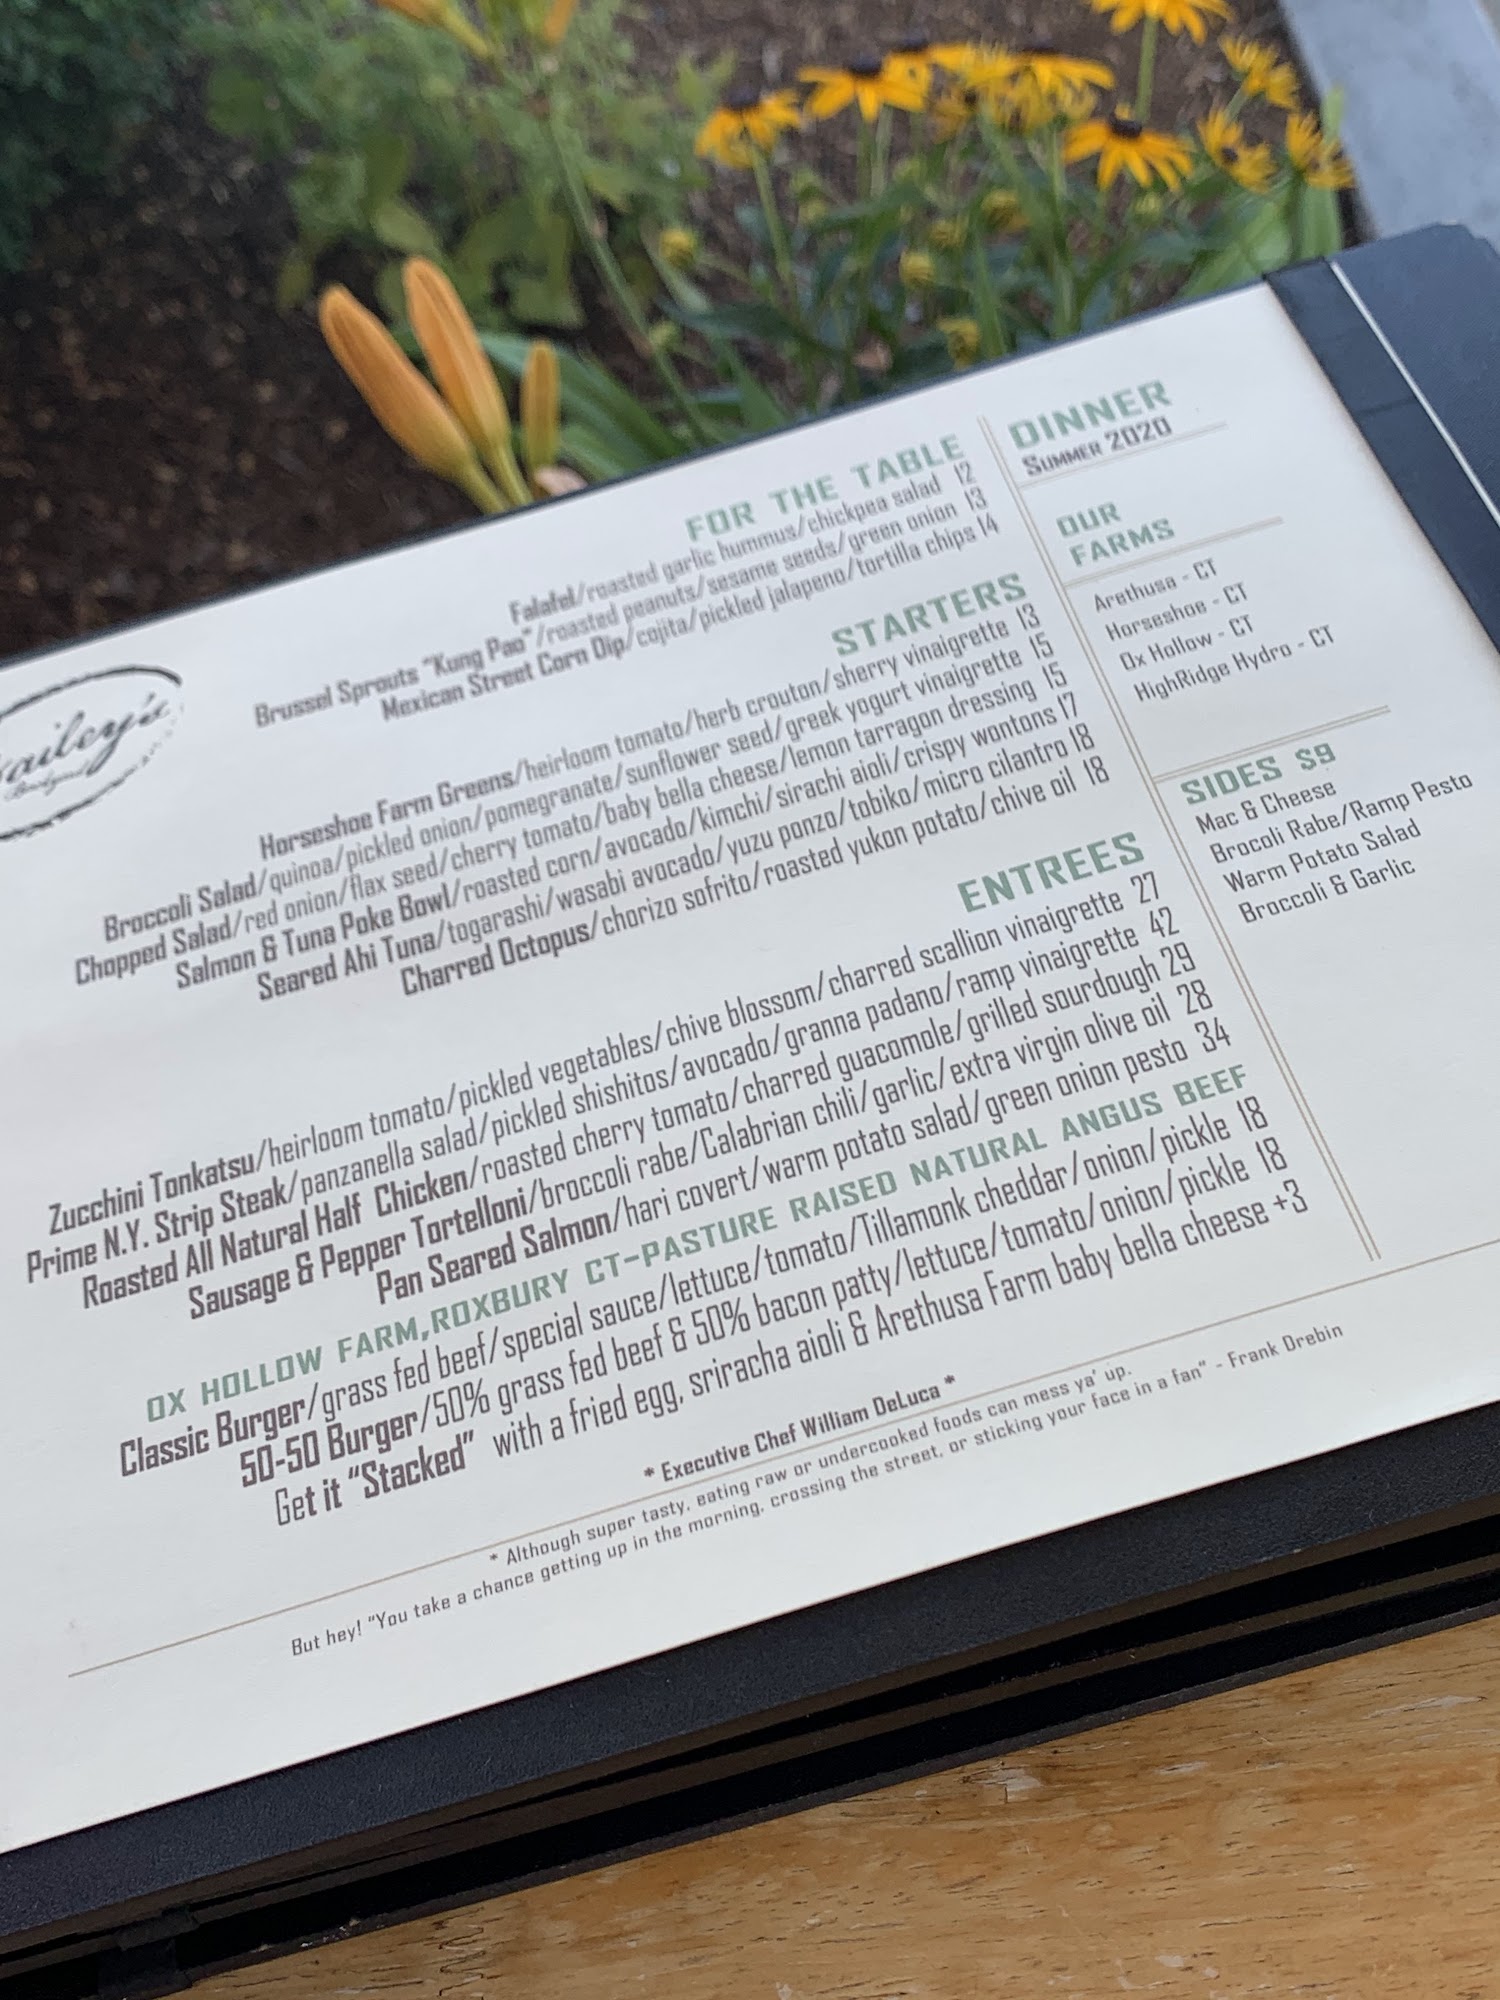 ailey's
DINNER
SUMMER 2020
OUR
FARMS
Arethusa - CT
Horseshoe - CT
Ox Hollow - CT
HighRidge Hydro - CT
SIDES $9
Mac & Cheese
Brocoli Rabe/Ramp Pesto
Warm Potato Salad
Broccoli & Garlic
FOR THE TABLE
Falafel/roasted garlic hummus/chickpea salad 12
Brussel Sprouts "Kung Pao"/roasted peanuts/sesame seeds/green onion 13
Mexican Street Corn Dip/cojita/pickled jalapeno/tortilla chips 14
STARTERS
Horseshoe Farm Greens/heirloom tomato/herb crouton/sherry vinaigrette 13
Broccoli Salad/quinoa/pickled onion/pomegranate/sunflower seed/greek yogurt vinaigrette 15
Chopped Salad/red onion/flax seed/cherry tomato/baby bella cheese/lemon tarragon dressing 15
Salmon & Tuna Poke Bowl/roasted corn/avocado/kimchi/sirachi aioli/crispy wontons 17
Seared Ahi Tuna/togarashi/wasabi avocado/yuzu ponzo/tobiko/micro cilantro 18
Charred Octopus/chorizo sofrito/roasted yukon potato/chive oil 18
ENTREES
Zucchini Tonkatsu/heirloom tomato/pickled vegetables/chive blossom/charred scallion vinaigrette 27
Prime N.Y. Strip Steak/panzanella salad/pickled shishitos/avocado/granna padano/ramp vinaigrette 42
Roasted All Natural Half Chicken/roasted cherry tomato/charred guacomole/grilled sourdough 29
Sausage & Pepper Tortelloni/broccoli rabe/Calabrian chili/garlic/extra virgin olive oil 28
Pan Seared Salmon/hari covert/warm potato salad/green onion pesto 34
OX HOLLOW FARM,ROXBURY CT-PASTURE RAISED NATURAL ANGUS BEEF
Classic Burger/grass fed beef/special sauce/lettuce/tomato/Tillamonk cheddar/onion/pickle 18
50-50 Burger/50% grass fed beef & 50% bacon patty/lettuce/tomato/onion/pickle 18
Get it "Stacked" with a fried egg, sriracha aioli & Arethusa Farm baby bella cheese +3
* Executive Chef William DeLuca *
* Although super tasty, eating raw or undercooked foods can mess ya' up.
But hey! "You take a chance getting up in the morning, crossing the street, or sticking your face in a fan" - Frank Drebin